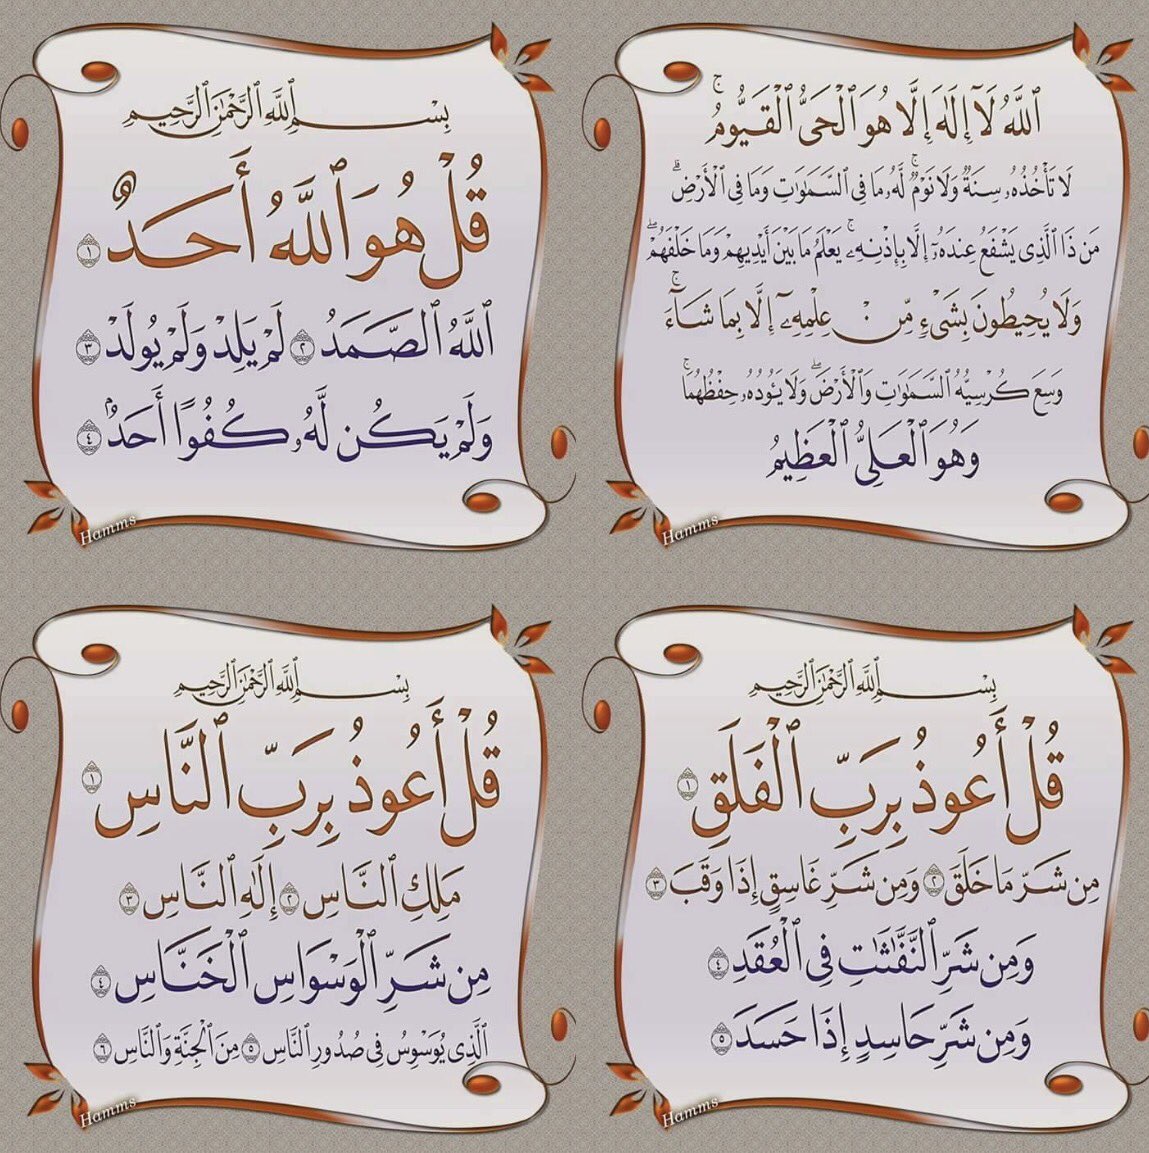 ٱللَّهُ لَآ إِلَٰهَ إِلَّا هُوَ ٱلْحَىُّ ٱلْقَيُّومُ ۚ
لَا تَأْخُذُهُۥ سِنَةٌ وَلَا نَوْمٌ ۚ لَّهُۥ مَا فِى ٱلسَّمَٰوَٰتِ وَمَا فِى ٱلْأَرْضِ ۗ
مَن ذَا ٱلَّذِى يَشْفَعُ عِندَهُۥٓ إِلَّا بِإِذْنِهِۦ ۚ يَعْلَمُ مَا بَيْنَ أَيْدِيهِمْ وَمَا خَلْفَهُمْ ۖ
وَلَا يُحِيطُونَ بِشَىْءٍ مِّنْ عِلْمِهِۦٓ إِلَّا بِمَا شَآءَ ۚ
وَسِعَ كُرْسِيُّهُ ٱلسَّمَٰوَٰتِ وَٱلْأَرْضَ ۖ وَلَا يَـُٔودُهُۥ حِفْظُهُمَا ۚ
وَهُوَ ٱلْعَلِىُّ ٱلْعَظِيمُ
Hamms
بِسْمِ ٱللَّهِ ٱلرَّحْمَٰنِ ٱلرَّحِيمِ
قُلْ هُوَ ٱللَّهُ أَحَدٌ ١
ٱللَّهُ ٱلصَّمَدُ ٢ لَمْ يَلِدْ وَلَمْ يُولَدْ ٣
وَلَمْ يَكُن لَّهُۥ كُفُوًا أَحَدٌۢ ٤
Hamms
بِسْمِ ٱللَّهِ ٱلرَّحْمَٰنِ ٱلرَّحِيمِ
قُلْ أَعُوذُ بِرَبِّ ٱلْفَلَقِ ١
مِن شَرِّ مَا خَلَقَ ٢ وَمِن شَرِّ غَاسِقٍ إِذَا وَقَبَ ٣
وَمِن شَرِّ ٱلنَّفَّٰثَٰتِ فِى ٱلْعُقَدِ ٤
وَمِن شَرِّ حَاسِدٍ إِذَا حَسَدَ ٥
Hamms
بِسْمِ ٱللَّهِ ٱلرَّحْمَٰنِ ٱلرَّحِيمِ
قُلْ أَعُوذُ بِرَبِّ ٱلنَّاسِ ١
مَلِكِ ٱلنَّاسِ ٢ إِلَٰهِ ٱلنَّاسِ ٣
مِن شَرِّ ٱلْوَسْوَاسِ ٱلْخَنَّاسِ ٤
ٱلَّذِى يُوَسْوِسُ فِى صُدُورِ ٱلنَّاسِ ٥ مِنَ ٱلْجِنَّةِ وَٱلنَّاسِ ٦
Hamms